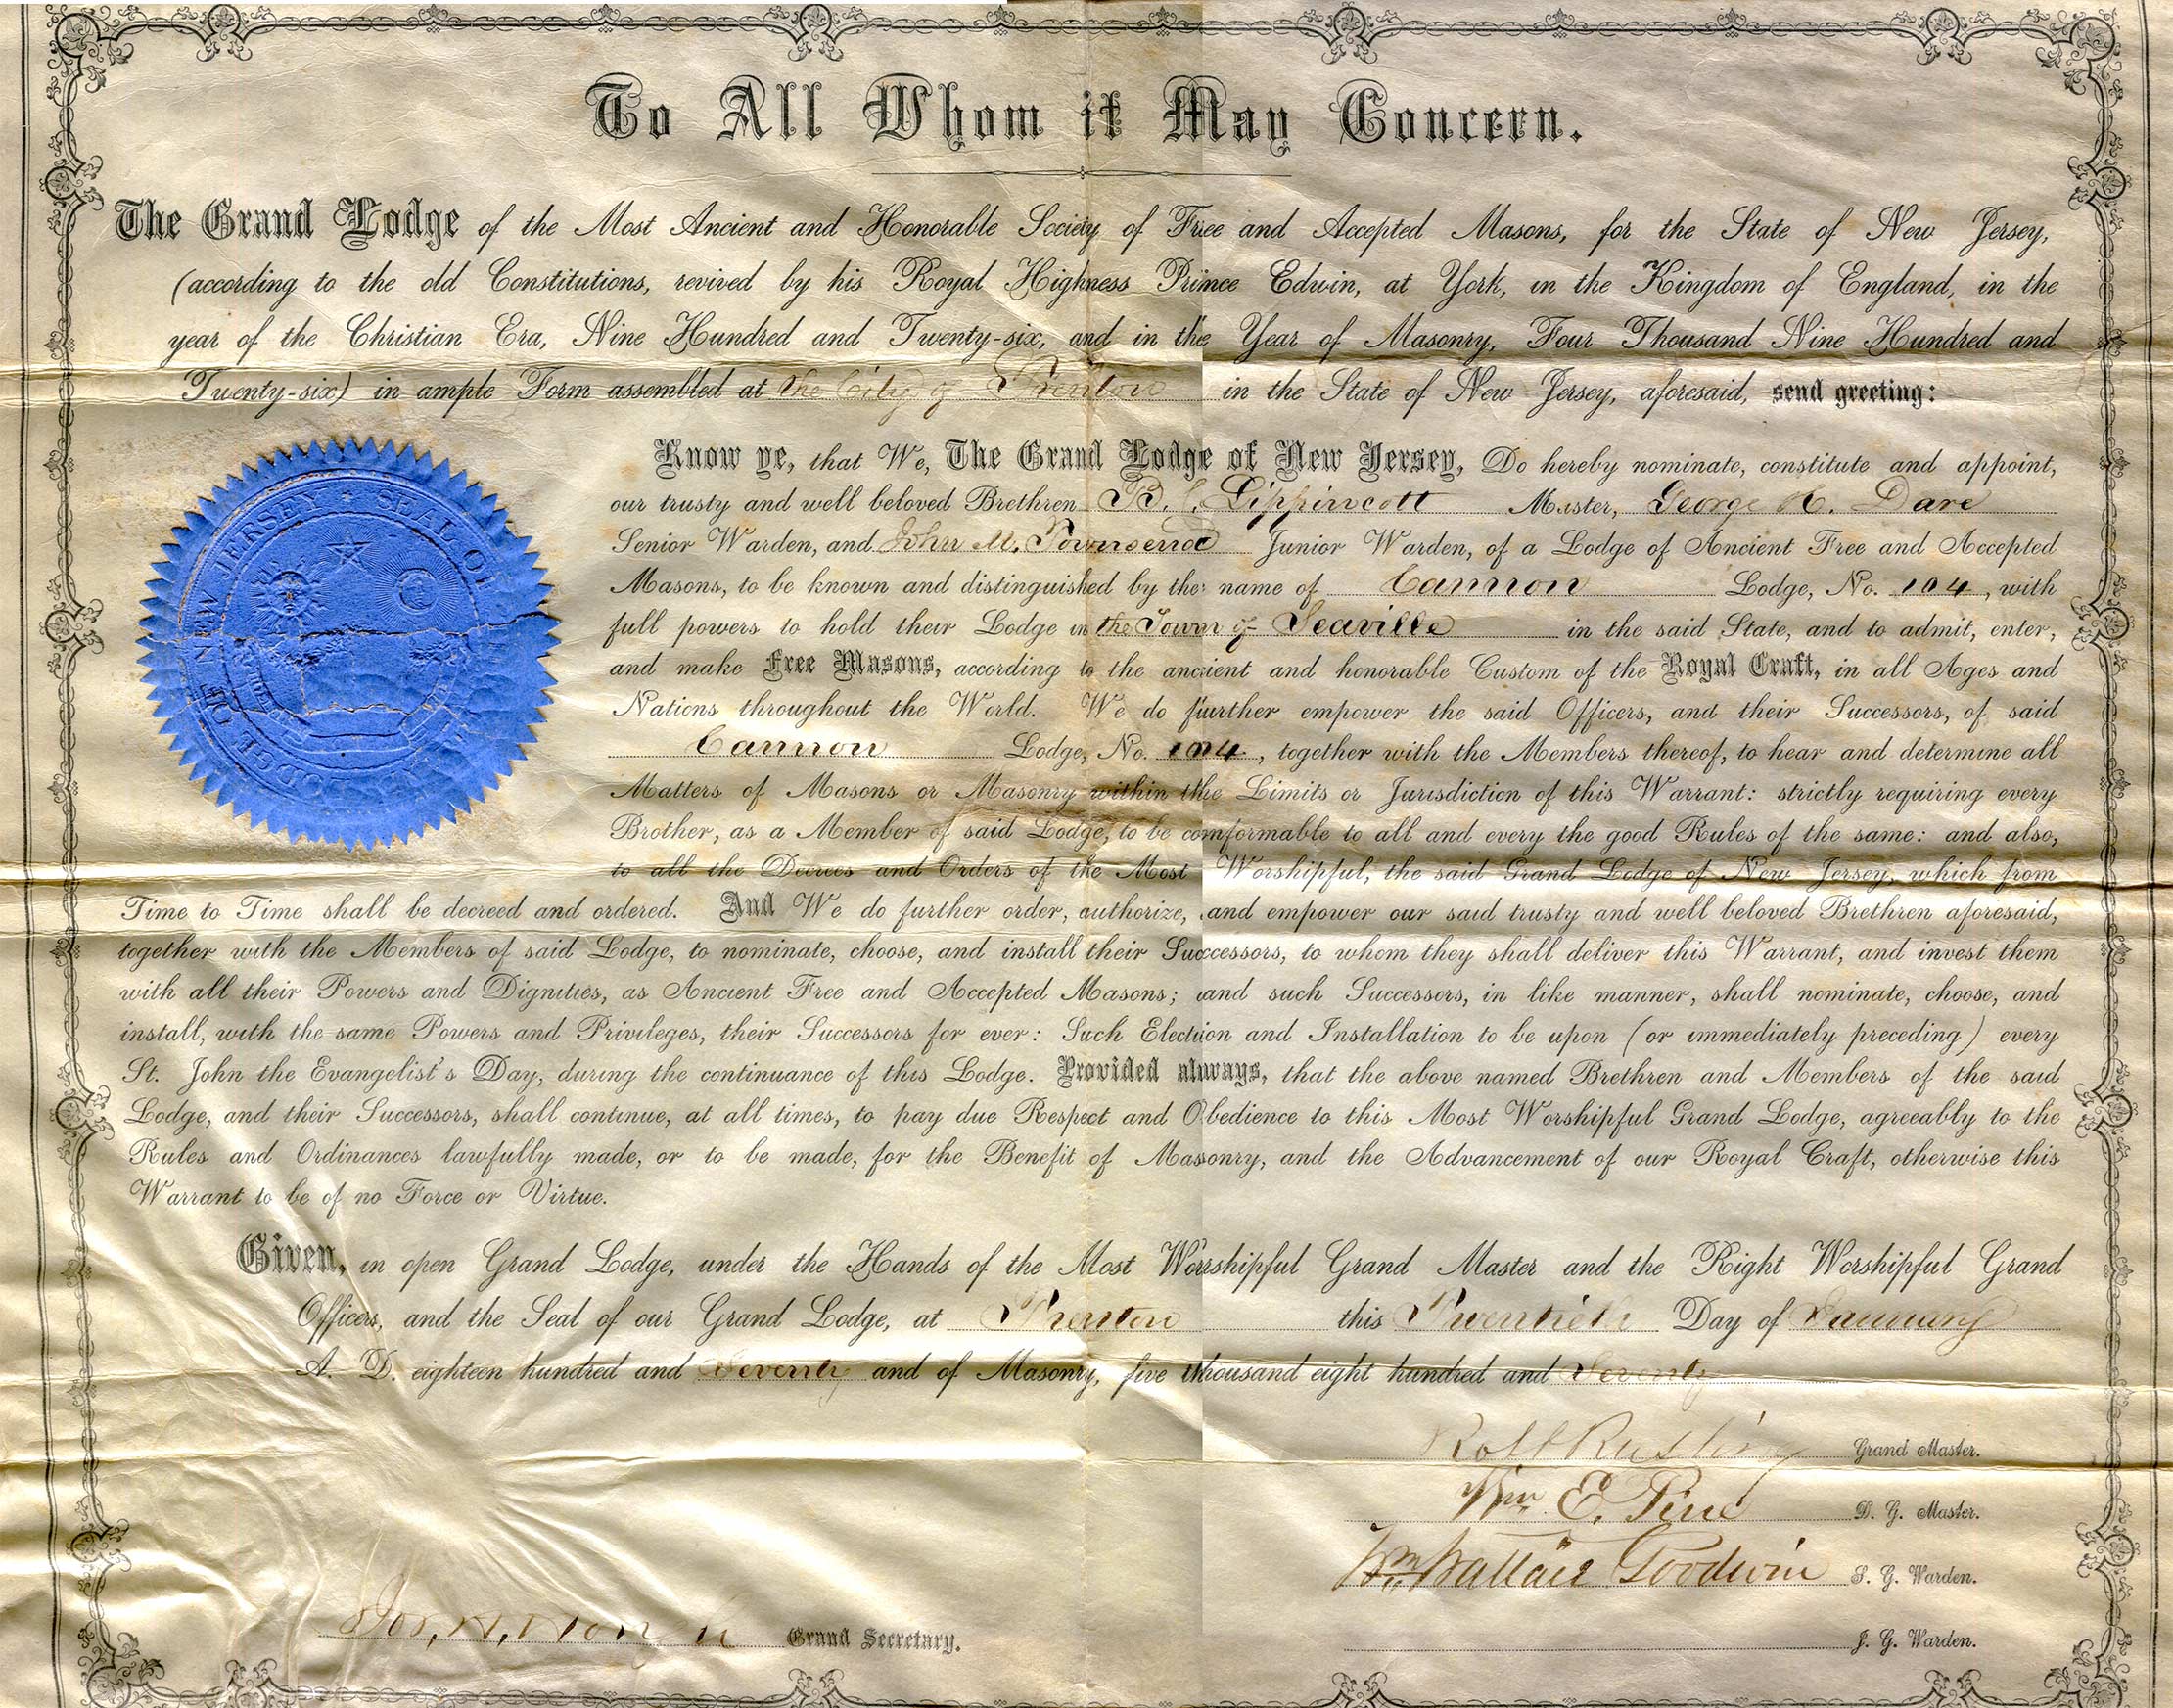 To All Whom it May Concern.
The Grand Lodge of the Most Ancient and Honorable Society of Free and Accepted Masons, for the State of New Jersey,
(according to the old Constitutions, revived by his Royal Highness Prince Edwin, at York, in the Kingdom of England, in the
year of the Christian Era, Nine Hundred and Twenty-six, and in the Year of Masonry, Four Thousand Nine Hundred and
Twenty-six) in ample Form assembled at the City of Trenton in the State of New Jersey, aforesaid, send greeting:
NEW JERSEY * SEAL OF
LODGE OF
Know ye, that We, The Grand Lodge of New Jersey, Do hereby nominate, constitute and appoint,
our trusty and well beloved Brethren B. Lippincott Master, George H. Dare
Senior Warden, and John M. Townsend Junior Warden, of a Lodge of Ancient Free and Accepted
Masons, to be known and distinguished by the name of Cannon Lodge, No. 104, with
full powers to hold their Lodge in the Town of Seaville in the said State, and to admit, enter,
and make Free Masons, according to the ancient and honorable Custom of the Royal Craft, in all Ages and
Nations throughout the World. We do further empower the said Officers, and their Successors, of said
Cannon Lodge, No. 104, together with the Members thereof, to hear and determine all
Matters of Masons or Masonry within the Limits or Jurisdiction of this Warrant: strictly requiring every
Brother, as a Member of said Lodge, to be comformable to all and every the good Rules of the same: and also,
to all the Decrees and Orders of the Most Worshipful, the said Grand Lodge of New Jersey, which from
Time to Time shall be decreed and ordered. And We do further order, authorize, and empower our said trusty and well beloved Brethren aforesaid,
together with the Members of said Lodge, to nominate, choose, and install their Successors, to whom they shall deliver this Warrant, and invest them
with all their Powers and Dignities, as Ancient Free and Accepted Masons; and such Successors, in like manner, shall nominate, choose, and
install, with the same Powers and Privileges, their Successors for ever: Such Election and Installation to be upon (or immediately preceding) every
St. John the Evangelist's Day, during the continuance of this Lodge. Provided always, that the above named Brethren and Members of the said
Lodge, and their Successors, shall continue, at all times, to pay due Respect and Obedience to this Most Worshipful Grand Lodge, agreeably to the
Rules and Ordinances lawfully made, or to be made, for the Benefit of Masonry, and the Advancement of our Royal Craft, otherwise this
Warrant to be of no Force or Virtue.
Given, in open Grand Lodge, under the Hands of the Most Worshipful Grand Master and the Right Worshipful Grand
Officers, and the Seal of our Grand Lodge, at Trenton this Twentieth Day of January
A. D. eighteen hundred and Seventy and of Masonry, five thousand eight hundred and Seventy
Robt Rusling Grand Master.
Wm E. Pine D. G. Master.
Wm Wallace Goodwin S. G. Warden.
Jos. H. Grand Secretary.
J. G. Warden.